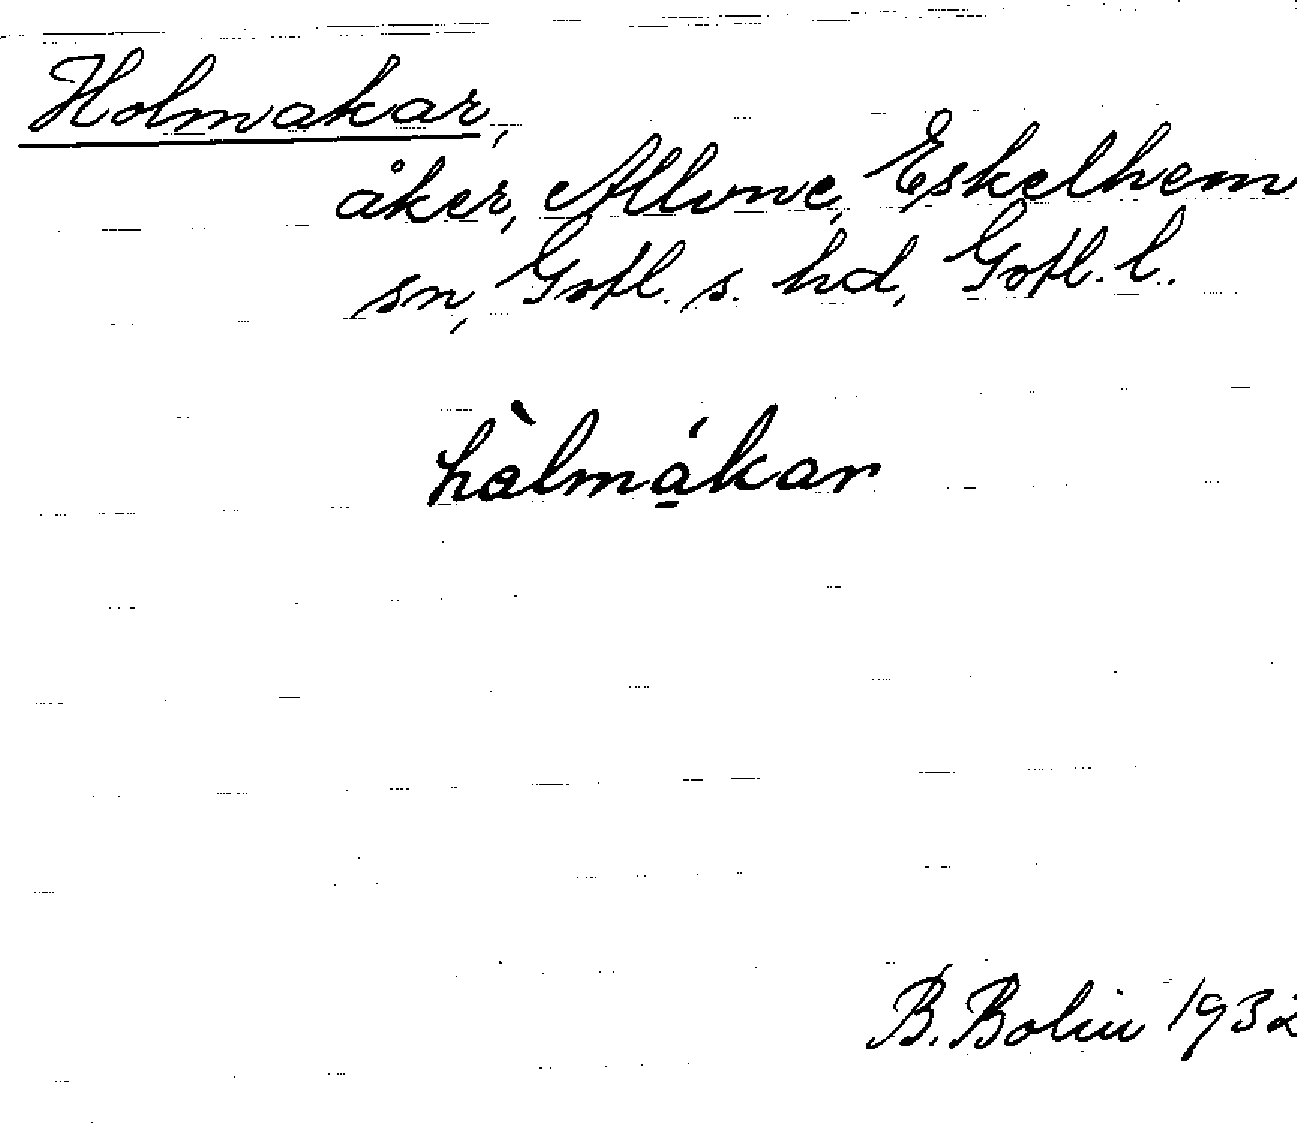 Holmakar,
åker, Allvne, Eskelhem
sn, Gotl. s. hd, Gotl. l.
hàlmá̱kar
B. Bolin 1932